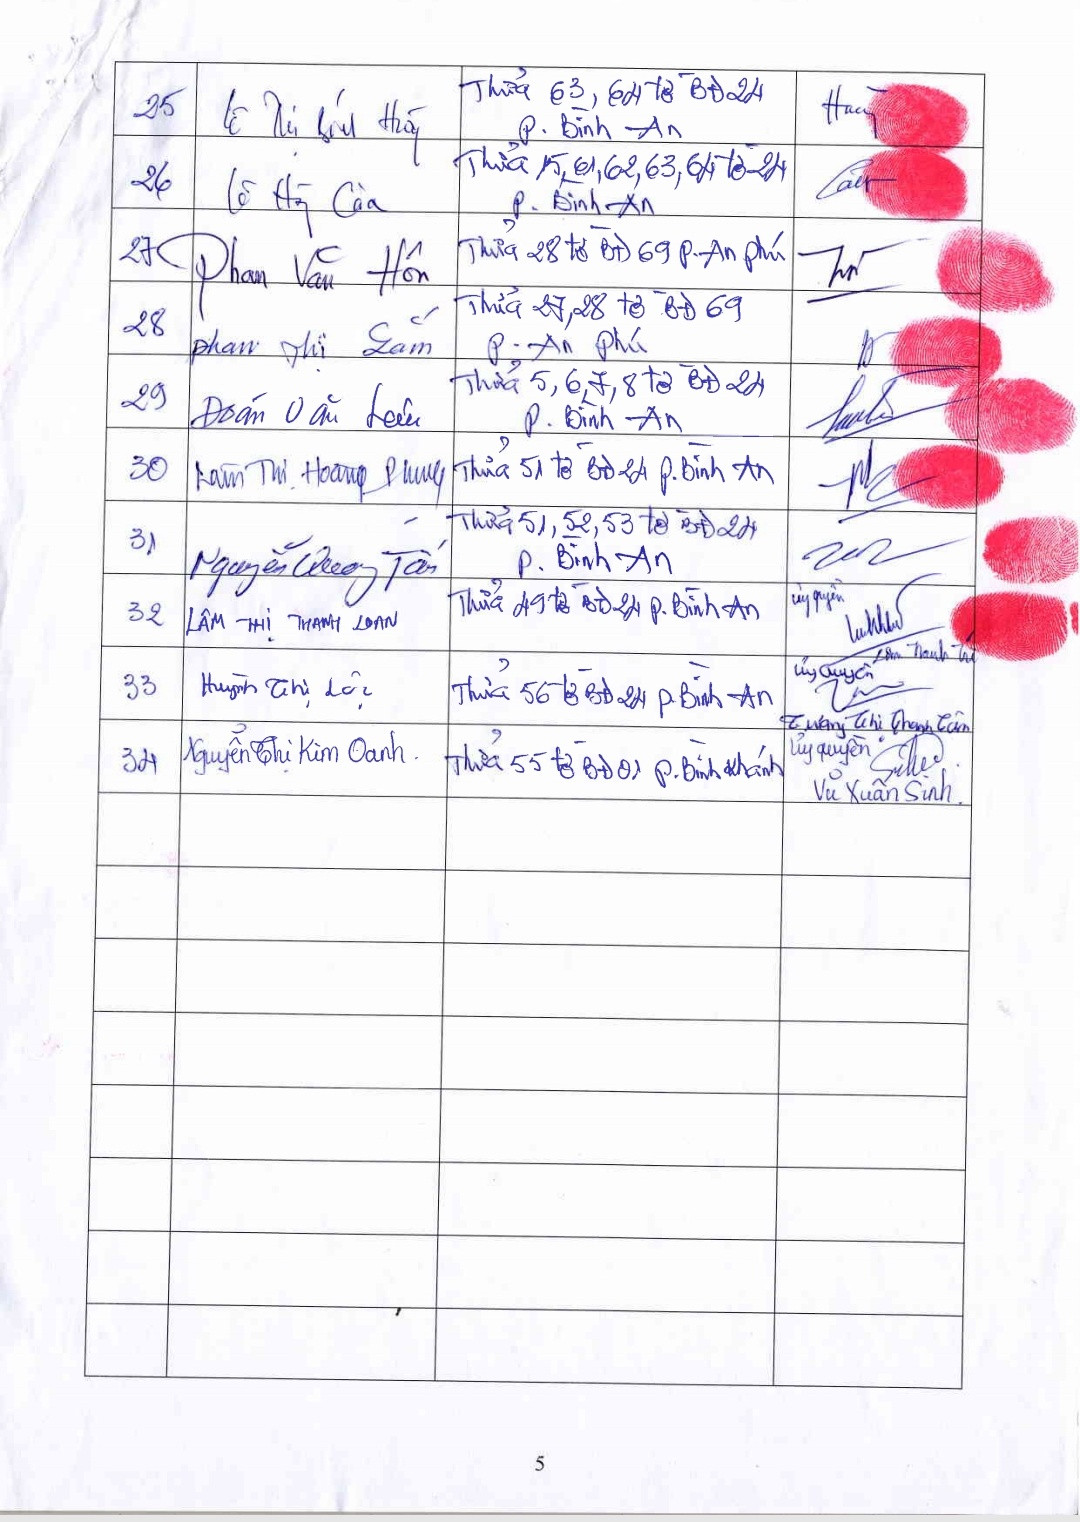 25 Lê Thị Bích Thủy Thửa 63, 64 tờ BĐ 24
P. Bình An
26 Lê Thị Cúa Thửa 15, 61, 62, 63, 64 tờ 24
P. Bình An
27 Phan Văn Hôn Thửa 28 tờ BĐ 69 P. An phú
28 phan thị Gấm Thửa 27, 28 tờ BĐ 69
P. An phú
29 Đoán Văn Thửa 5, 6, 7, 8 tờ BĐ 24
P. Bình An
30 Lâm Thị Hoàng Phung Thửa 51 tờ BĐ 24 p. Bình An
31 Nguyễn Quang Tấn Thửa 51, 52, 53 tờ BĐ 24
P. Bình An
32 LÂM THỊ THANH LOAN Thửa 49 tờ BĐ 24 p. Bình An ủy quyền
Lâm Thanh
33 Huỳnh thị Lộc Thửa 56 tờ BĐ 24 p. Bình An ủy quyền
Trương Thị Thanh Tâm
34 Nguyễn Thị Kim Oanh. Thửa 55 tờ BĐ 01 p. Bình Khánh ủy quyền
Vũ Xuân Sinh.
5